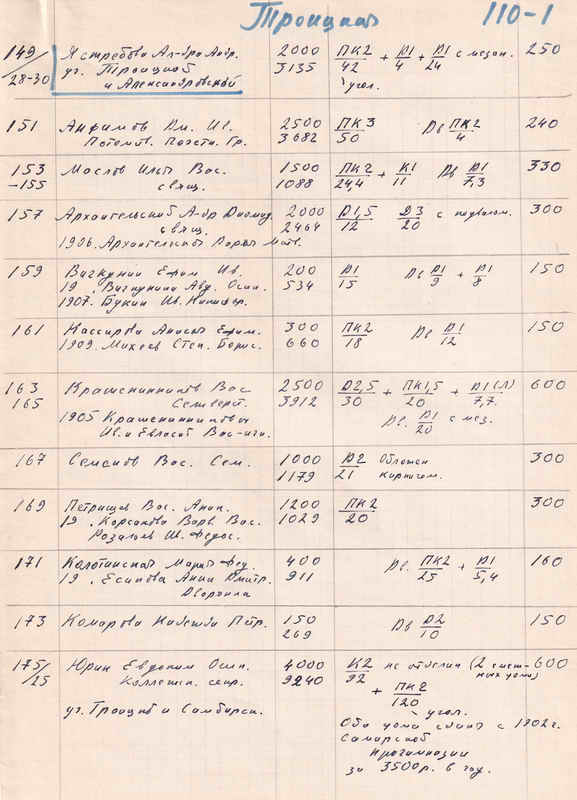 Троицкая 110-1
149/28-30 Ястребова Ал-дра Андр. 2000 ПК2/42 + Д1/4 + Д1/24 с мезон. 250
уг. Троицкой 3135 угол.
и Александровской
151 Анфимов Вл. Ив. 2500 ПК3/50 Дв ПК2/4 240
Потомств. Почетн. Гр. 3682
153 Маслов Илья Вас. 1500 ПК2/24,4 + К1/11 Дв Д1/7,3 330
-155 свящ. 1088
157 Архангельский А-др Диомид. 2000 Д1,5/12 Д3/20 с подвалом. 300
свящ. 2464
1906. Архангельская Варв. Матв.
159 Вичкунин Ефим Ив. 200 Д1/15 Дв Д1/9 + Д1/8 150
19 . Вичкунина Авд. Осип. 534
1907. Букин Ив. Никифор.
161 Кассирова Анисья Ефим. 300 ПК2/18 Дв Д1/12 150
1909. Михеев Степ. Борис. 660
163 Крашенинников Вас 2500 Д2,5/30 + ПК1,5/20 + Д1(Л)/7,7. 600
165 Селиверст. 3912 Дв. Д1/20 с мез.
1905 Крашенинниковы
Ив. и Евласий Вас-ичи.
167 Семенов Вас. Сем. 1000 Д2/21 Обложен 300
1179 кирпичем.
169 Петрищев Вас. Анан. 1200 ПК2/20 300
19 . Корсакова Варв. Вас. 1029
Розальев Ив. Федос.
171 Калатинская Мария Фед. 400 Дв. ПК2/25 + Д1/5,4 160
19 . Есипова Анна Дмитр. 911
Дворянка
173 Комарова Надежда Петр. 150 Дв Д2/10 150
269
175/25 Юрин Евдоким Осип. 4000 К2/92 не отделан (2 счетных дома) 600
Коллежск. секр. 9240 + ПК2/120
уг. Троицкой и Симбирск. угол.
Оба дома сданы с 1902г.
Самарской
прогимназии
за 3500р. в год.